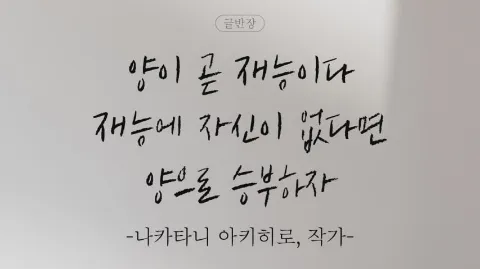 글반장
양이 곧 재능이다
재능에 자신이 없다면
양으로 승부하자
-나카타니 아키히로, 작가-